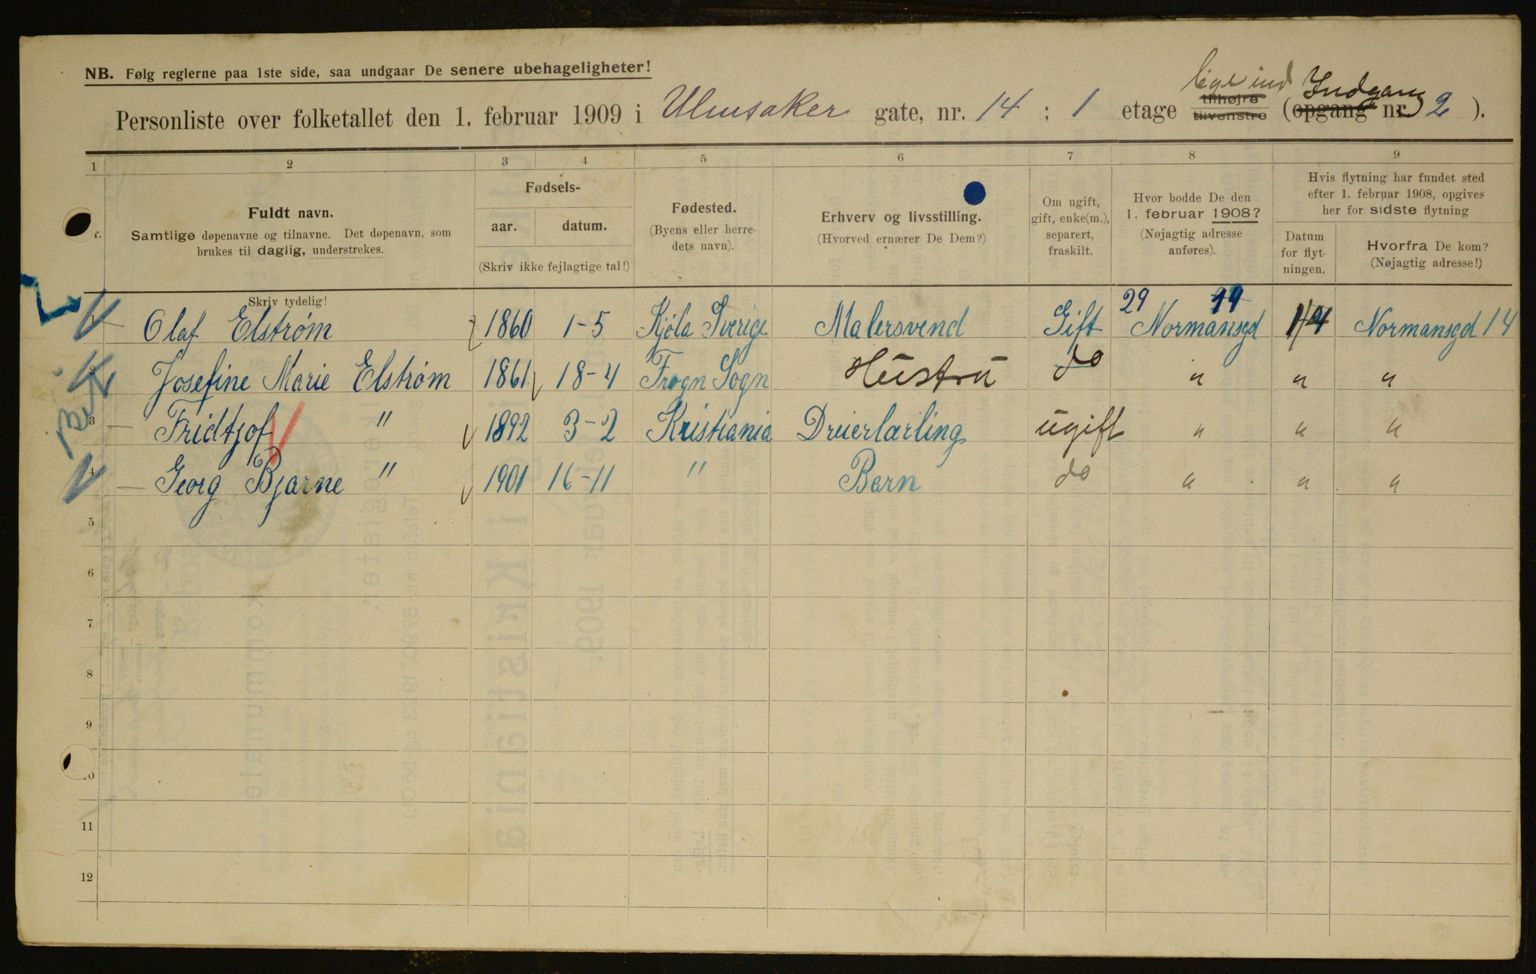 NB. Følg reglerne paa 1ste side, saa undgaar De senere ubehageligheter!
Personliste over folketallet den 1. februar 1909 i Ulensaker gate, nr. 14 : 1 etage tilhøire tilvenstre lige ind (opgang Indgang nr. 2 ).
1 2 3 4 5 6 7 8 9
Fuldt navn.
Samtlige døpenavne og tilnavne. Det døpenavn, som
brukes til daglig, understrekes.
Skriv tydelig!
Fødsels-
aar. datum.
(Skriv ikke fejlagtige tal!)
Fødested.
(Byens eller herre-
dets navn).
Erhverv og livsstilling.
(Hvorved ernærer De Dem?)
Om ugift,
gift, enke(m.),
separert,
fraskilt.
Hvor bodde De den
1. februar 1908?
(Nøjagtig adresse
anføres).
Hvis flytning har fundet sted
efter 1. februar 1908, opgives
her for sidste flytning
Datum
for flyt-
ningen.
Hvorfra De kom?
(Nøjagtig adresse!)
1 Olaf Elstrøm 1860 1-5 Kjøla Sverige Malersvend Gift 29 Normansgd 14 Normansgd 14
2 Josefine Marie Elstrøm 1861 18-4 Frogn Sogn Hustru do " " "
3 Fridtjof " 1892 3-2 Kristiania Dreierlærling ugift " " "
4 Georg Bjarne " 1901 16-11 " Barn do " " "
5
6
7
8
9
10
11
12